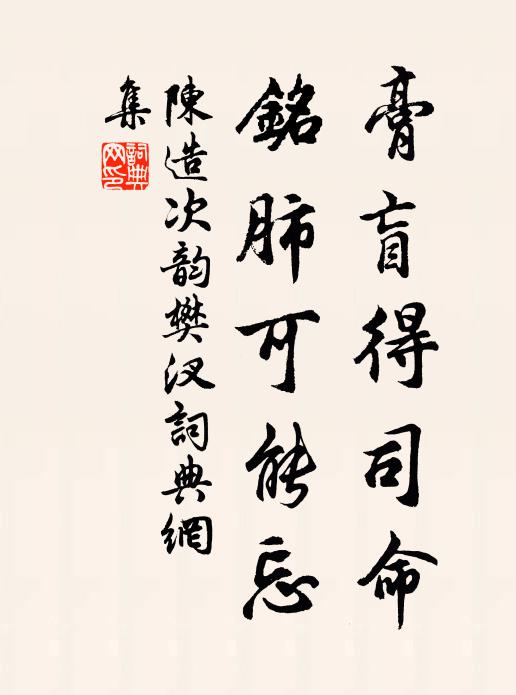 膏肓得司命
銘肺可能忘
陳造次韵樊汊詞典網
集
詞典網印